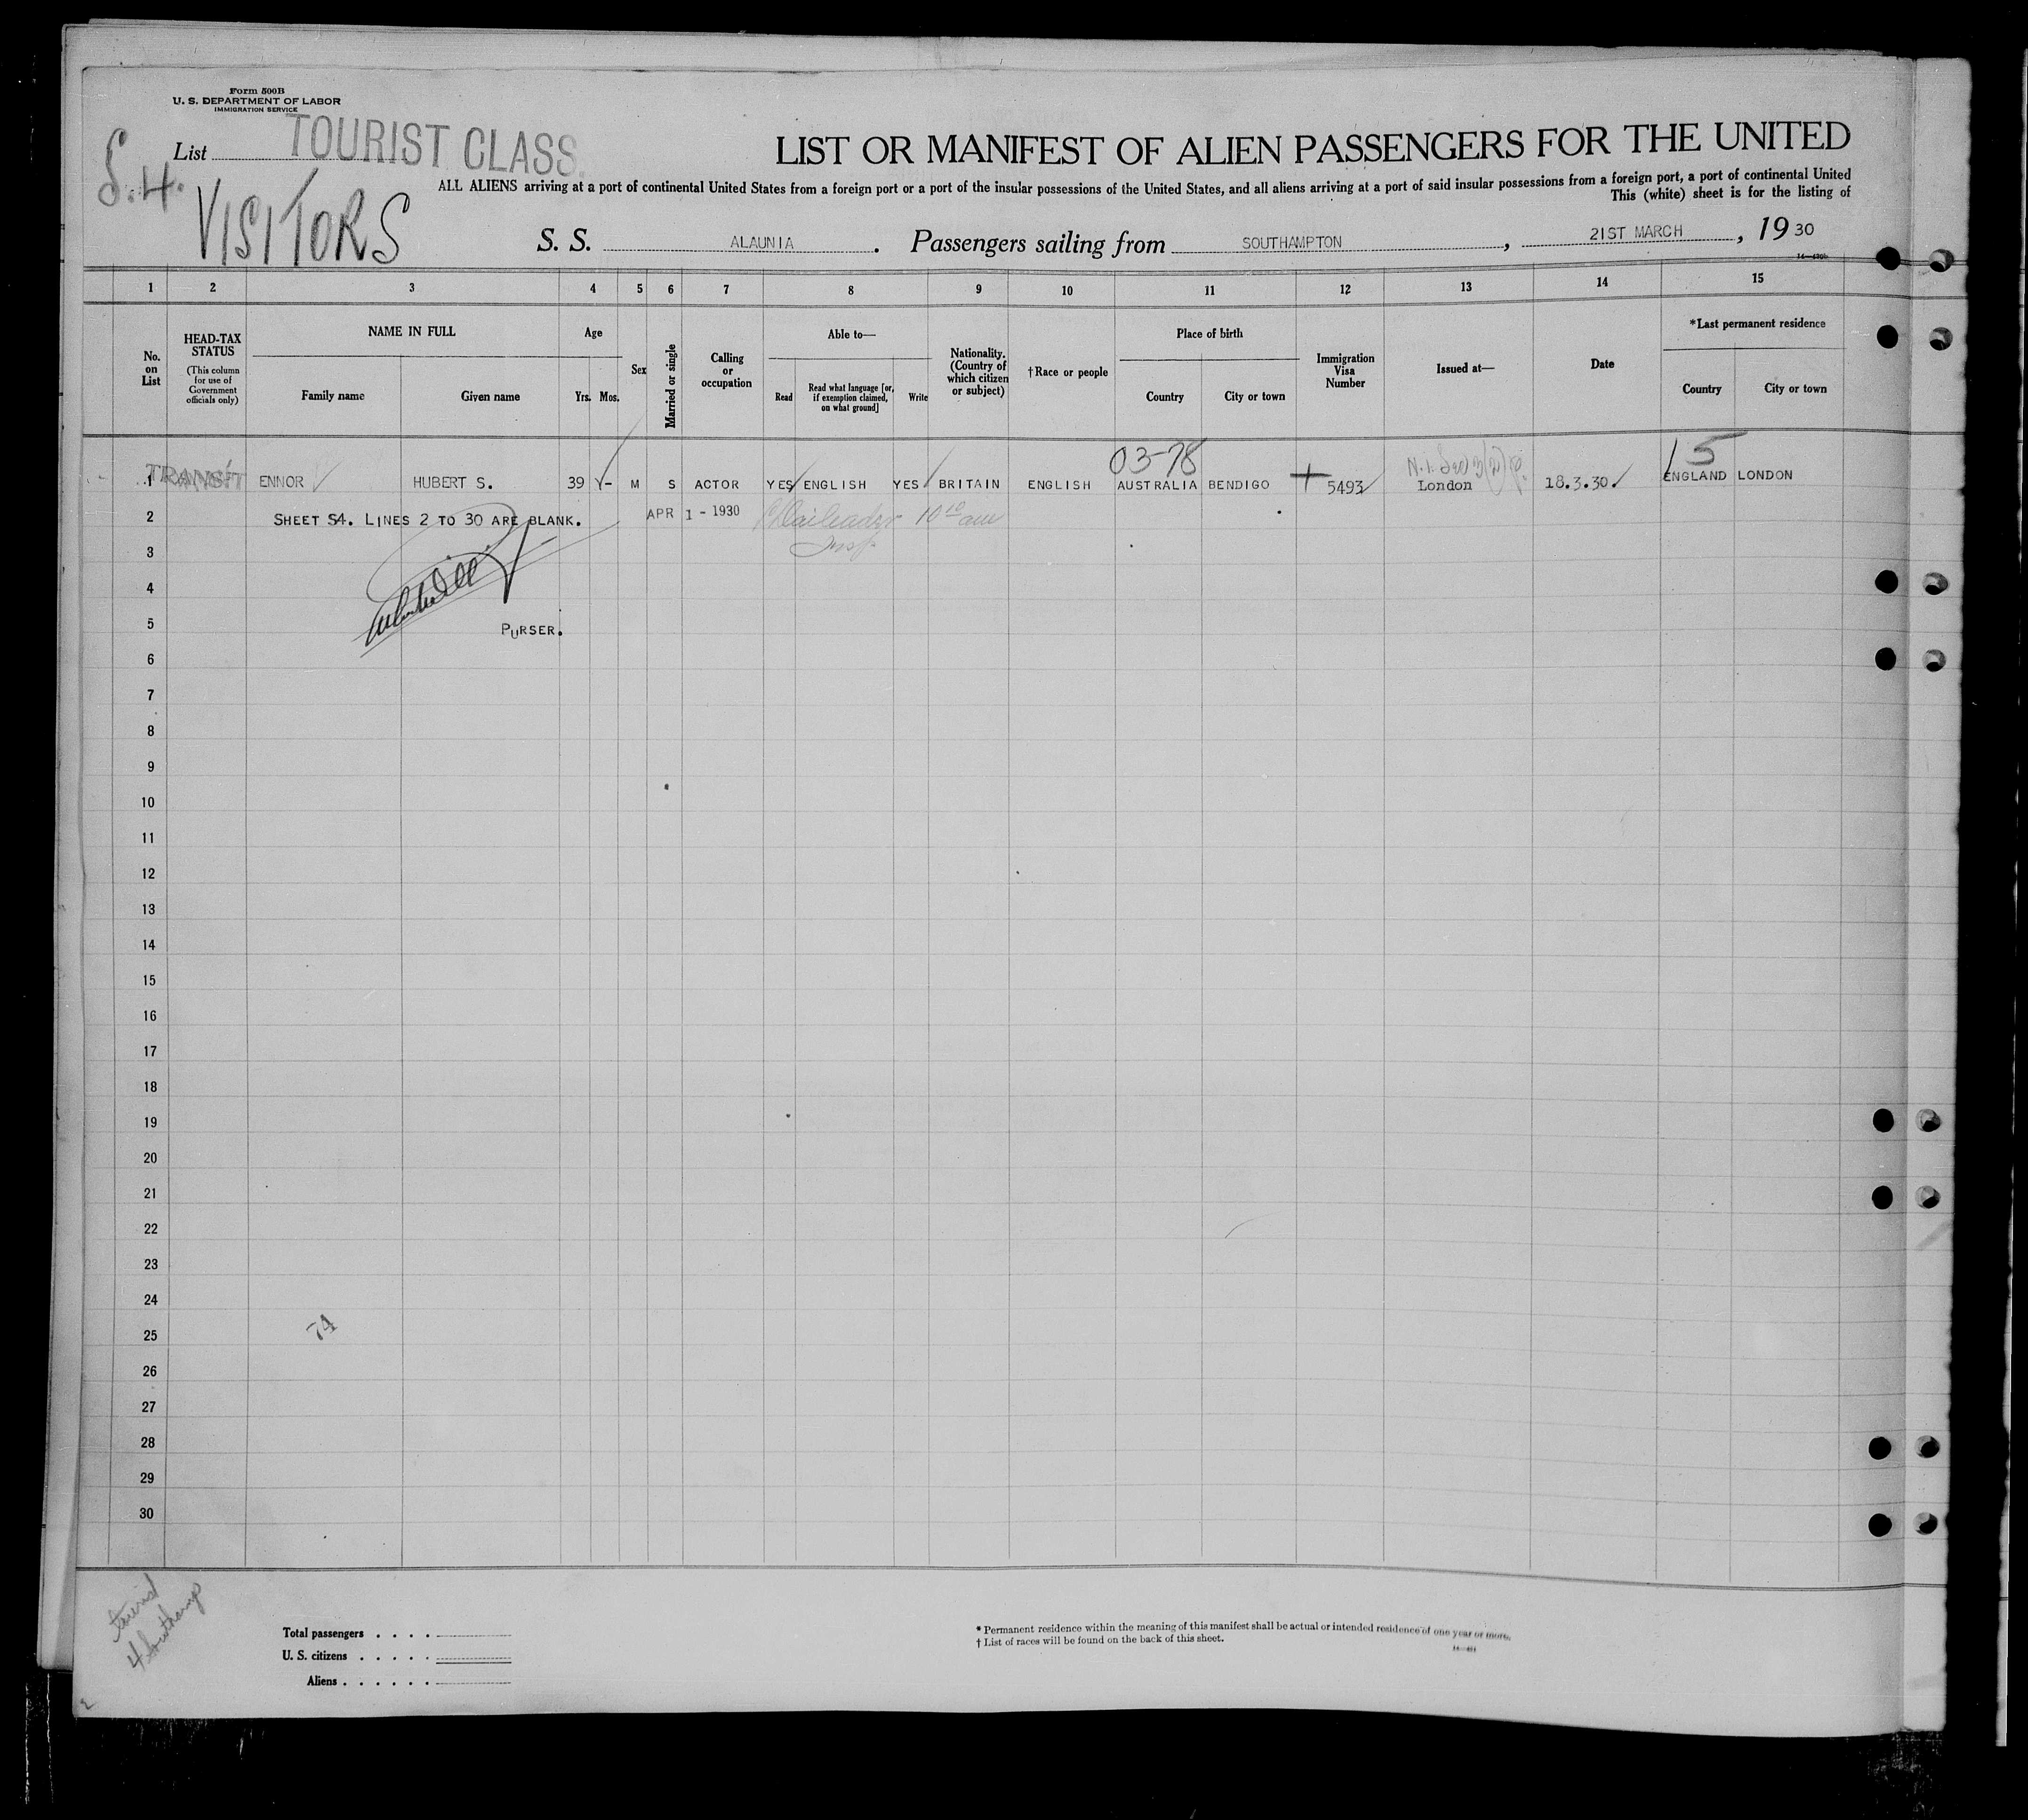 Form 500B
U. S. DEPARTMENT OF LABOR
IMMIGRATION SERVICE
S.4.
List TOURIST CLASS.
VISITORS
LIST OR MANIFEST OF ALIEN PASSENGERS FOR THE UNITED
ALL ALIENS arriving at a port of continental United States from a foreign port or a port of the insular possessions of the United States, and all aliens arriving at a port of said insular possessions from a foreign port, a port of continental United
This (white) sheet is for the listing of
S. S. ALAUNIA . Passengers sailing from SOUTHAMPTON , 21ST MARCH , 19 30
1 2 3 4 5 6 7 8 9 10 11 12 13 14 15
No. on List
HEAD-TAX STATUS
(This column for use of Government officials only)
NAME IN FULL
Family name Given name
Age
Yrs. Mos.
Sex
Married or single
Calling or occupation
Able to—
Read
Read what language [or, if exemption claimed, on what ground]
Write
Nationality. (Country of which citizen or subject)
†Race or people
Place of birth
Country City or town
Immigration Visa Number
Issued at—
Date
*Last permanent residence
Country City or town
03-78
15
1 TRANSIT ENNOR HUBERT S. 39 - M S ACTOR YES ENGLISH YES BRITAIN ENGLISH AUSTRALIA BENDIGO 5493 London 18.3.30. ENGLAND LONDON
2 SHEET S4. LINES 2 TO 30 ARE BLANK. APR 1 - 1930 10 10 am
3
4
5 PURSER.
6
7
8
9
10
11
12
13
14
15
16
17
18
19
20
21
22
23
24
25 74
26
27
28
29
30
tourist
4 Southamp
Total passengers . . . .
U. S. citizens . . . . .
Aliens . . . . . .
* Permanent residence within the meaning of this manifest shall be actual or intended residence of one year or more.
† List of races will be found on the back of this sheet.